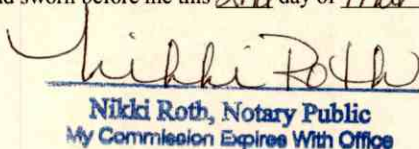 sworn before me this 2nd day of
Nikki Roth
Nikki Roth, Notary Public
My Commission Expires With Office